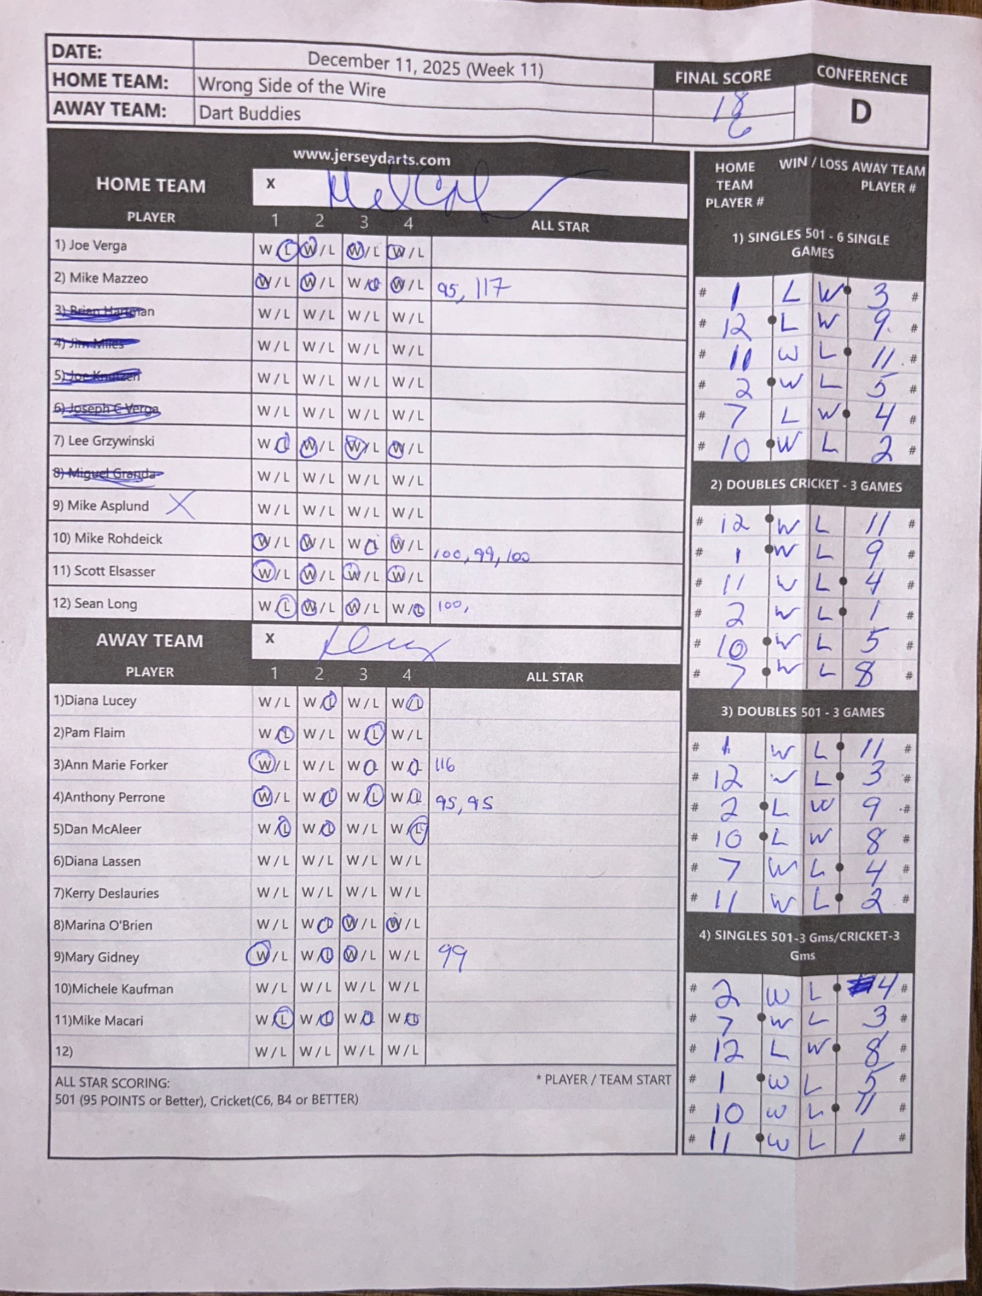 DATE: December 11, 2025 (Week 11)
HOME TEAM: Wrong Side of the Wire
AWAY TEAM: Dart Buddies
FINAL SCORE CONFERENCE
18 D
6
www.jerseydarts.com
HOME TEAM X
PLAYER 1 2 3 4 ALL STAR
1) Joe Verga W/L W/L W/L W/L
2) Mike Mazzeo W/L W/L W/L W/L 95, 117
3) Brien Hartman W/L W/L W/L W/L
4) Jim Miles W/L W/L W/L W/L
5) Joe W/L W/L W/L W/L
6) Joseph C Verga W/L W/L W/L W/L
7) Lee Grzywinski W/L W/L W/L W/L
8) Miguel Granda W/L W/L W/L W/L
9) Mike Asplund X W/L W/L W/L W/L
10) Mike Rohdeick W/L W/L W/L W/L 100, 99, 100
11) Scott Elsasser W/L W/L W/L W/L
12) Sean Long W/L W/L W/L W/L 100,
AWAY TEAM X
PLAYER 1 2 3 4 ALL STAR
1)Diana Lucey W/L W/L W/L W/L
2)Pam Flaim W/L W/L W/L W/L
3)Ann Marie Forker W/L W/L W/L W/L 116
4)Anthony Perrone W/L W/L W/L W/L 95, 95
5)Dan McAleer W/L W/L W/L W/L
6)Diana Lassen W/L W/L W/L W/L
7)Kerry Deslauries W/L W/L W/L W/L
8)Marina O'Brien W/L W/L W/L W/L
9)Mary Gidney W/L W/L W/L W/L 99
10)Michele Kaufman W/L W/L W/L W/L
11)Mike Macari W/L W/L W/L W/L
12) W/L W/L W/L W/L
ALL STAR SCORING: * PLAYER / TEAM START
501 (95 POINTS or Better), Cricket(C6, B4 or BETTER)
HOME TEAM PLAYER # WIN / LOSS AWAY TEAM PLAYER #
1) SINGLES 501 - 6 SINGLE
GAMES
# 1 L W• 3 #
# 12 •L W 9 #
# 11 W L• 11 #
# 2 •W L 5 #
# 7 L W• 4 #
# 10 •W L 2 #
2) DOUBLES CRICKET - 3 GAMES
# 12 •W L 11 #
# 1 •W L 9 #
# 11 W L• 4 #
# 2 W L• 1 #
# 10 •W L 5 #
# 7 •W L 8 #
3) DOUBLES 501 - 3 GAMES
# 1 W L• 11 #
# 12 W L• 3 #
# 2 •L W 9 #
# 10 •L W 8 #
# 7 W L• 4 #
# 11 W L• 2 #
4) SINGLES 501-3 Gms/CRICKET-3
Gms
# 2 W L• 4 #
# 7 •W L 3 #
# 12 L W• 8 #
# 1 •W L 5 #
# 10 W L• 11 #
# 11 •W L 1 #